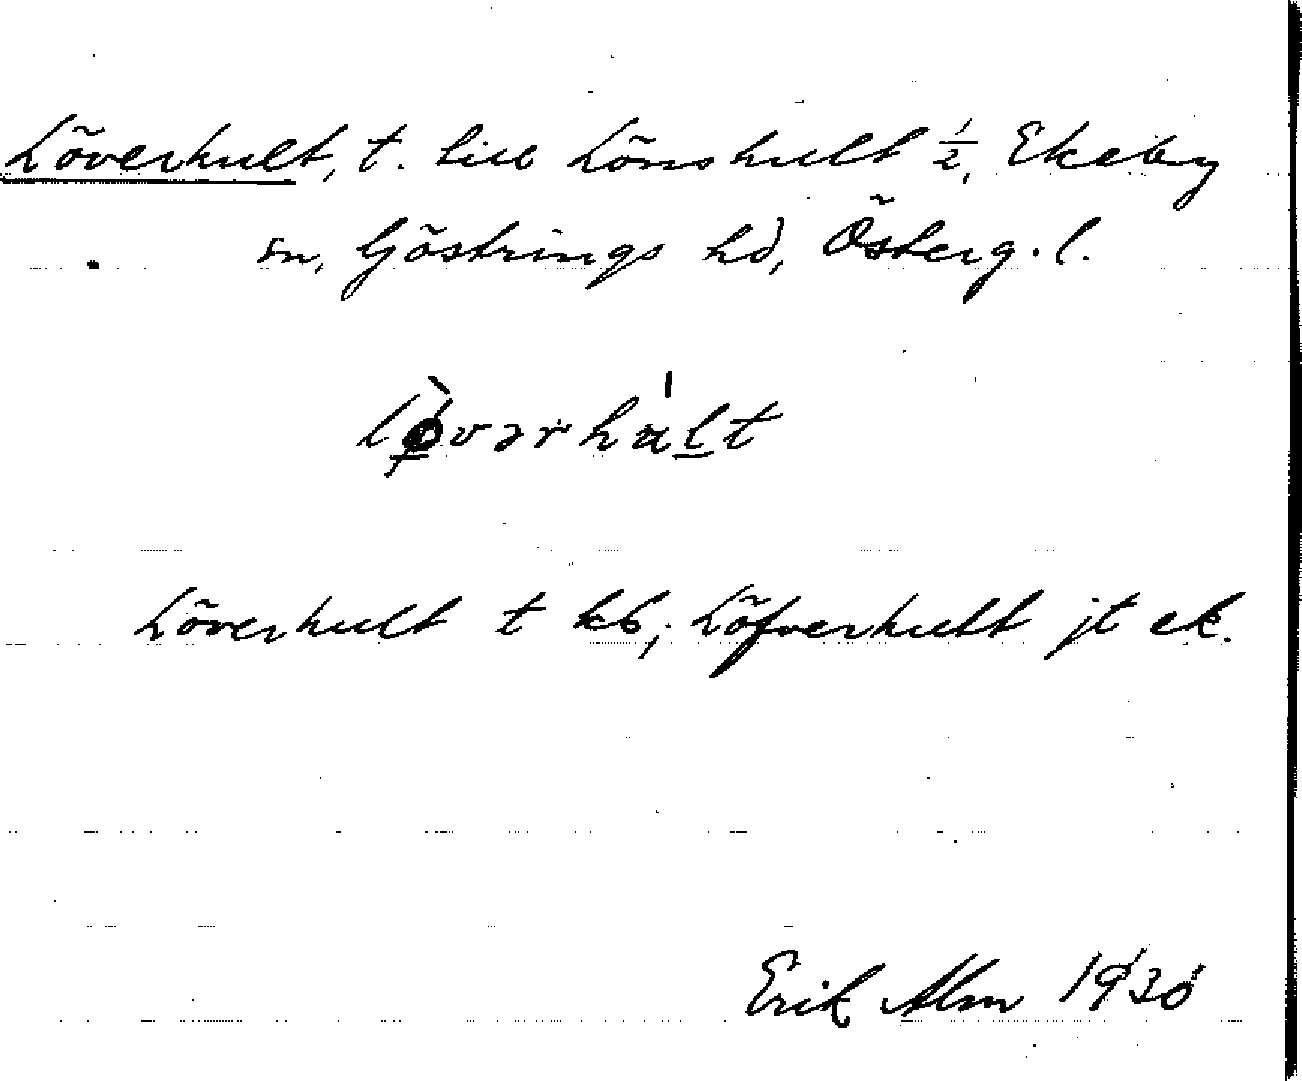 Löverhult, t. till Lönshult ½, Ekeby
sn, Göstrings hd, Österg. l.
lø̀vərhúlt
Löverhult t kb; Löfverhult jt ek.
Erik Alm 1930